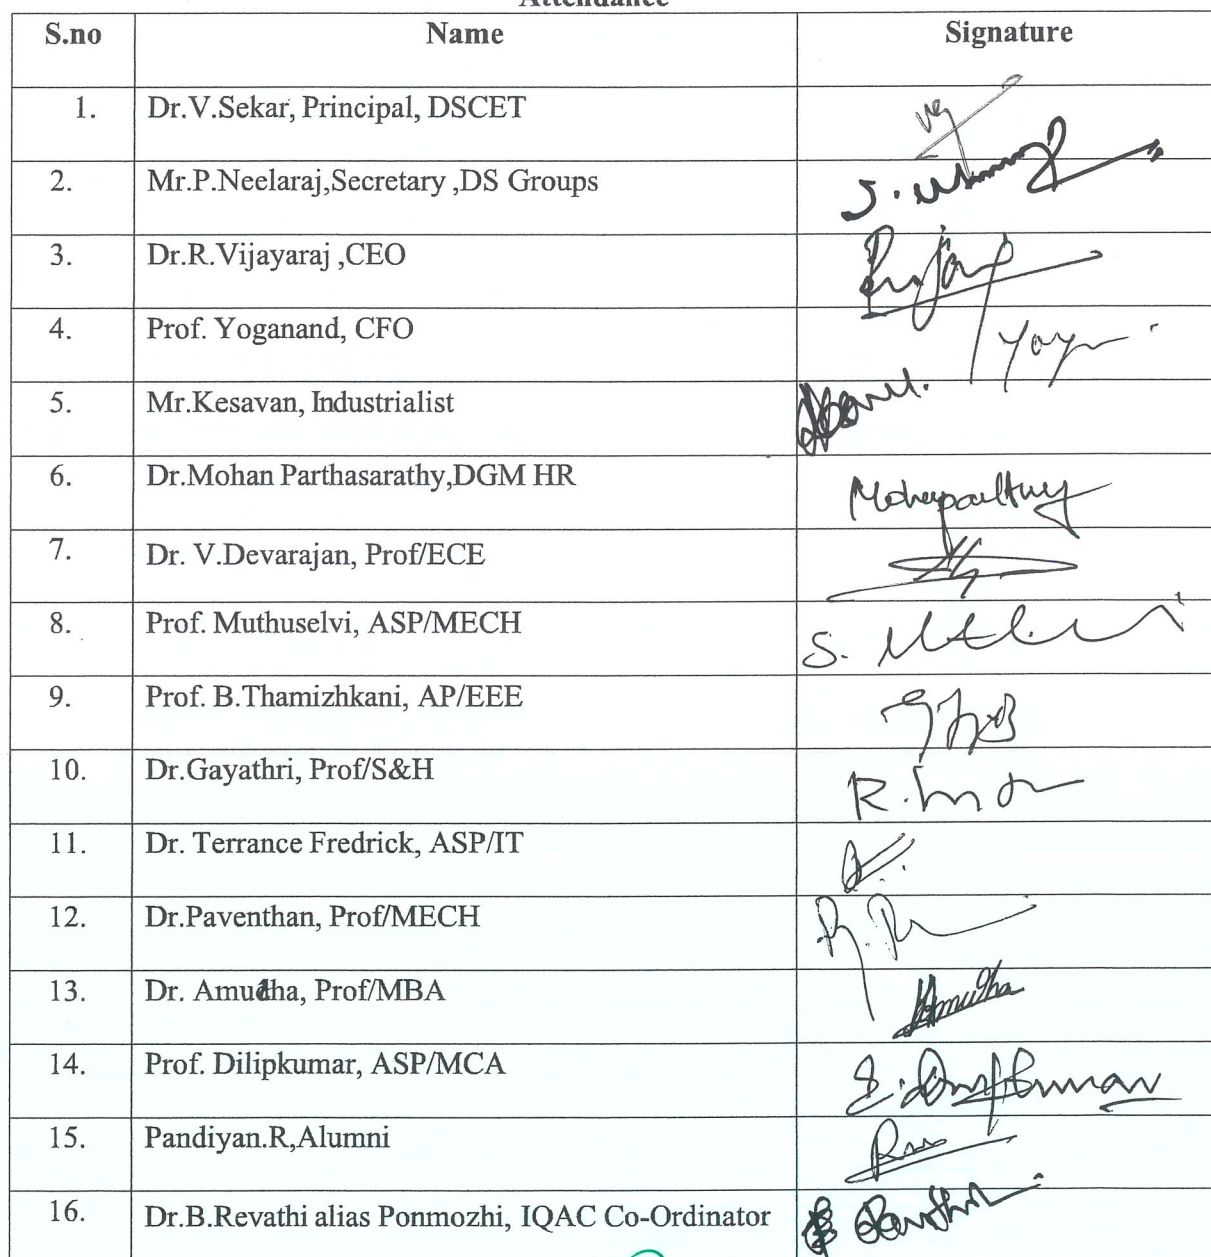 Attendance
S.no Name Signature
1. Dr.V.Sekar, Principal, DSCET
2. Mr.P.Neelaraj,Secretary ,DS Groups
3. Dr.R.Vijayaraj ,CEO
4. Prof. Yoganand, CFO
5. Mr.Kesavan, Industrialist
6. Dr.Mohan Parthasarathy,DGM HR
7. Dr. V.Devarajan, Prof/ECE
8. Prof. Muthuselvi, ASP/MECH
9. Prof. B.Thamizhkani, AP/EEE
10. Dr.Gayathri, Prof/S&H
11. Dr. Terrance Fredrick, ASP/IT
12. Dr.Paventhan, Prof/MECH
13. Dr. Amudha, Prof/MBA Amudha
14. Prof. Dilipkumar, ASP/MCA
15. Pandiyan.R,Alumni
16. Dr.B.Revathi alias Ponmozhi, IQAC Co-Ordinator